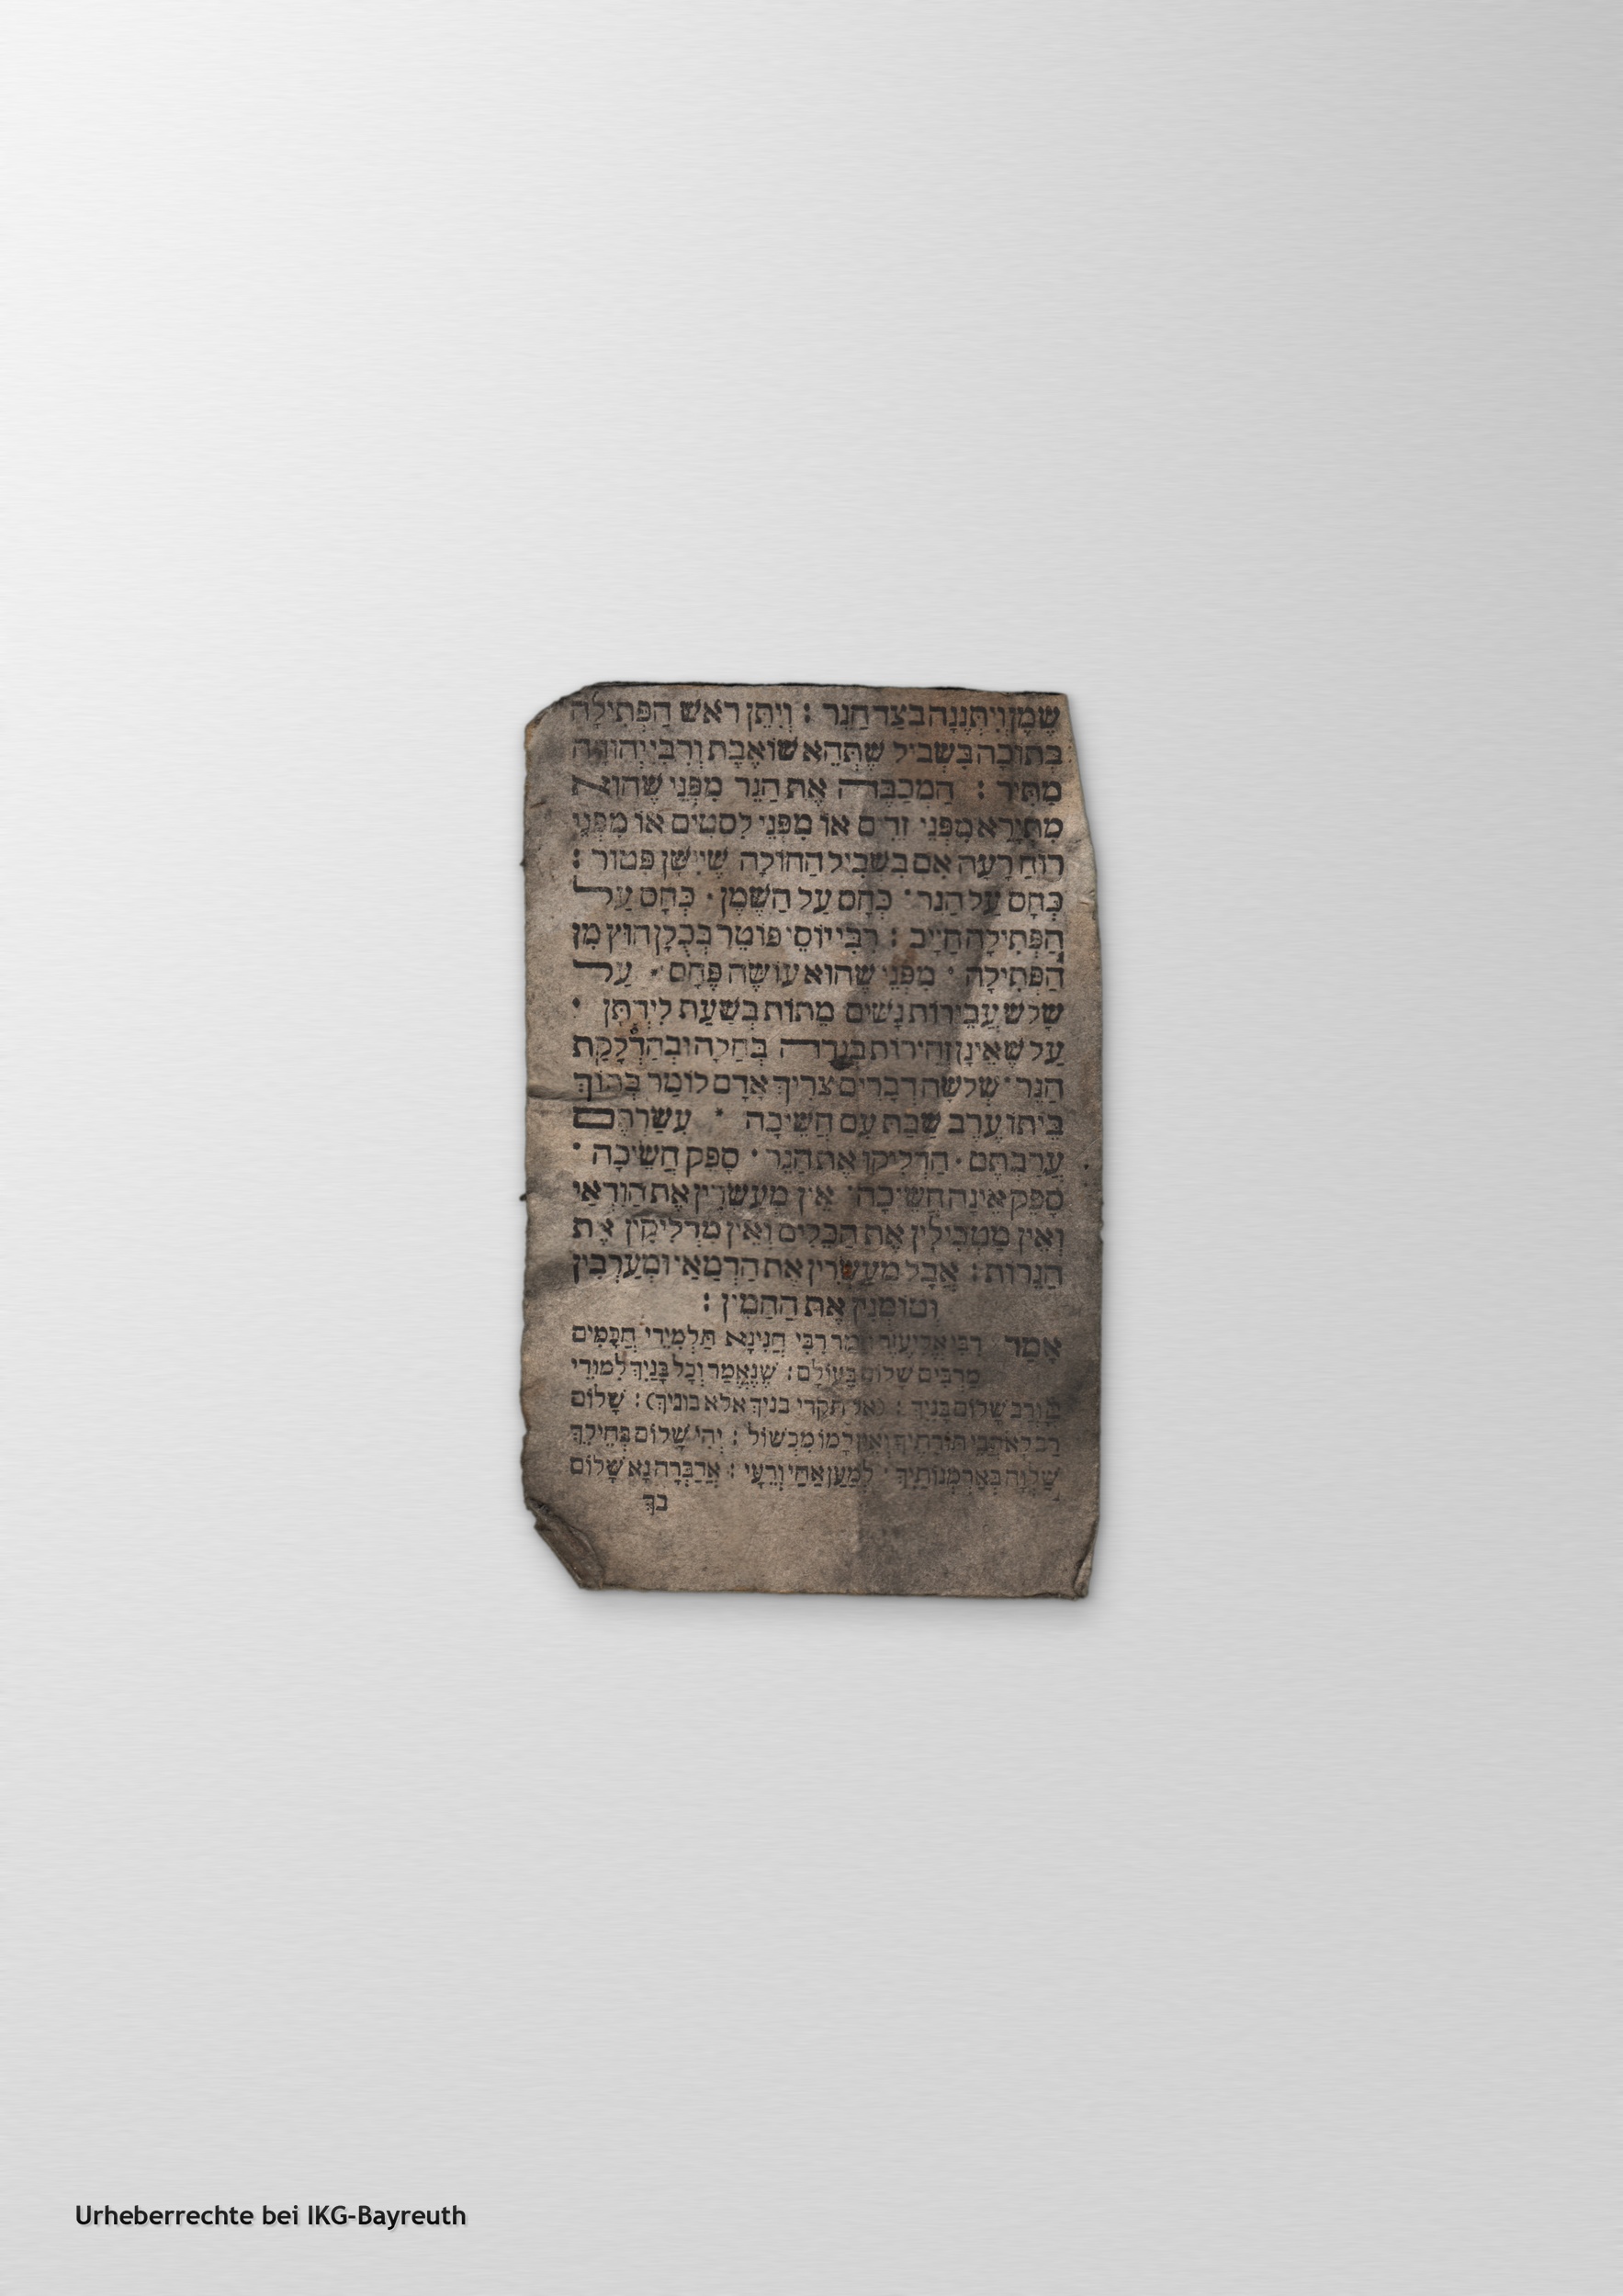 שֶׁמֶן וְיִתְּנֶנָּה בְצַד הַנֵּר : וְיִתֵּן רֹאשׁ הַפְּתִילָה
בְּתוֹכָהּ בִּשְׁבִיל שֶׁתְּהֵא שׁוֹאֶבֶת וְרַבִּי יְהוּדָה
מַתִּיר : הַמְכַבֶּה אֶת הַנֵּר מִפְּנֵי שֶׁהוּא
מִתְיָרֵא מִפְּנֵי זָרִים אוֹ מִפְּנֵי לִסְטִים אוֹ מִפְּנֵי
רוּחַ רָעָה אִם בִּשְׁבִיל הַחוֹלֶה שֶׁיִּישַׁן פָּטוּר :
כְּחָס עַל הַנֵּר · כְּחָס עַל הַשֶּׁמֶן · כְּחָס עַל
הַפְּתִילָה חַיָּיב : רַבִּי יוֹסֵי פּוֹטֵר בְּכֻלָּן חוּץ מִן
הַפְּתִילָה · מִפְּנֵי שֶׁהוּא עוֹשֶׂהָ פֶּחָם · עַל
שָׁלֹשׁ עֲבֵירוֹת נָשִׁים מֵתוֹת בִּשְׁעַת לֵידָתָן ·
עַל שֶׁאֵינָן זְהִירוֹת בְּנִדָּה בְּחַלָּה וּבְהַדְלָקַת
הַנֵּר · שְׁלֹשָׁה דְבָרִים צָרִיךְ אָדָם לוֹמַר בְּתוֹךְ
בֵּיתוֹ עֶרֶב שַׁבָּת עִם חֲשֵׁיכָה · עִשַּׂרְתֶּם
עֵרַבְתֶּם · הַדְלִיקוּ אֶת הַנֵּר · סָפֵק חֲשֵׁיכָה ·
סָפֵק אֵינָהּ חֲשֵׁיכָה · אֵין מְעַשְּׂרִין אֶת הַוַּדַּאי
וְאֵין מַטְבִּילִין אֶת הַכֵּלִים וְאֵין מַדְלִיקִין אֶת
הַנֵּרוֹת : אֲבָל מְעַשְּׂרִין אֶת הַדְּמַאי וּמְעָרְבִין
וְטוֹמְנִין אֶת הַחַמִּין :
אָמַר רַבִּי אֶלְעָזָר אָמַר רַבִּי חֲנִינָא תַּלְמִידֵי חֲכָמִים
מַרְבִּים שָׁלוֹם בָּעוֹלָם : שֶׁנֶּאֱמַר וְכָל בָּנַיִךְ לִמּוּדֵי
וְרַב שְׁלוֹם בָּנָיִךְ : (אל תקרי בניך אלא בוניך) : שָׁלוֹם
רַב לְאֹהֲבֵי תוֹרָתֶךָ וְאֵין לָמוֹ מִכְשׁוֹל : יְהִי שָׁלוֹם בְּחֵילֵךְ
שַׁלְוָה בְּאַרְמְנוֹתָיִךְ · לְמַעַן אַחַי וְרֵעָי : אֲדַבְּרָה נָּא שָׁלוֹם
בָּךְ
Urheberrechte bei IKG-Bayreuth